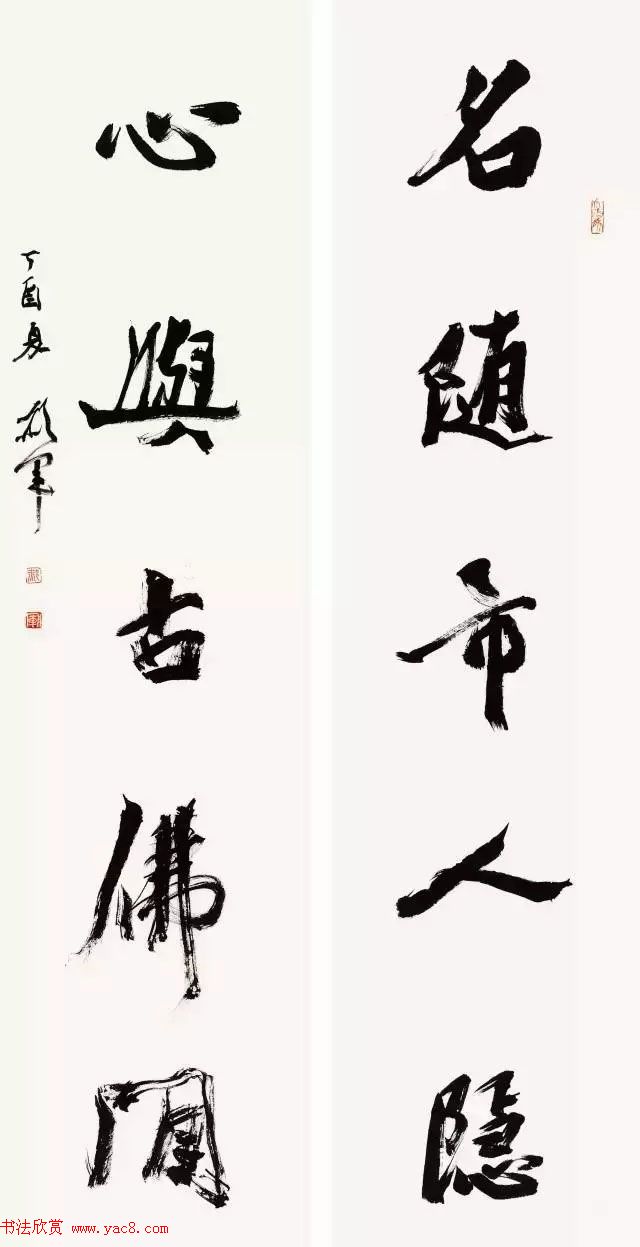 名随市人隐
心與古佛閒
丁酉夏
書法欣赏 www.yac8.com